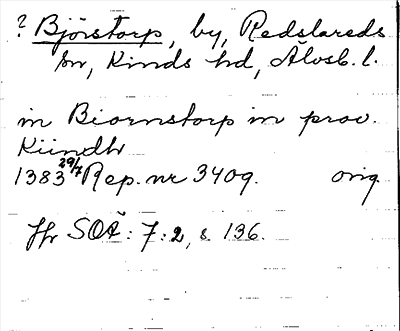 ? Björstorp, by, Redslareds
sn, Kinds hd, Älvsb. l.
in Biornstorp in prov.
Kiindh
1383 29/7 Rep. nr 3409. orig
Jfr SOÄ: 7:2, s. 136.